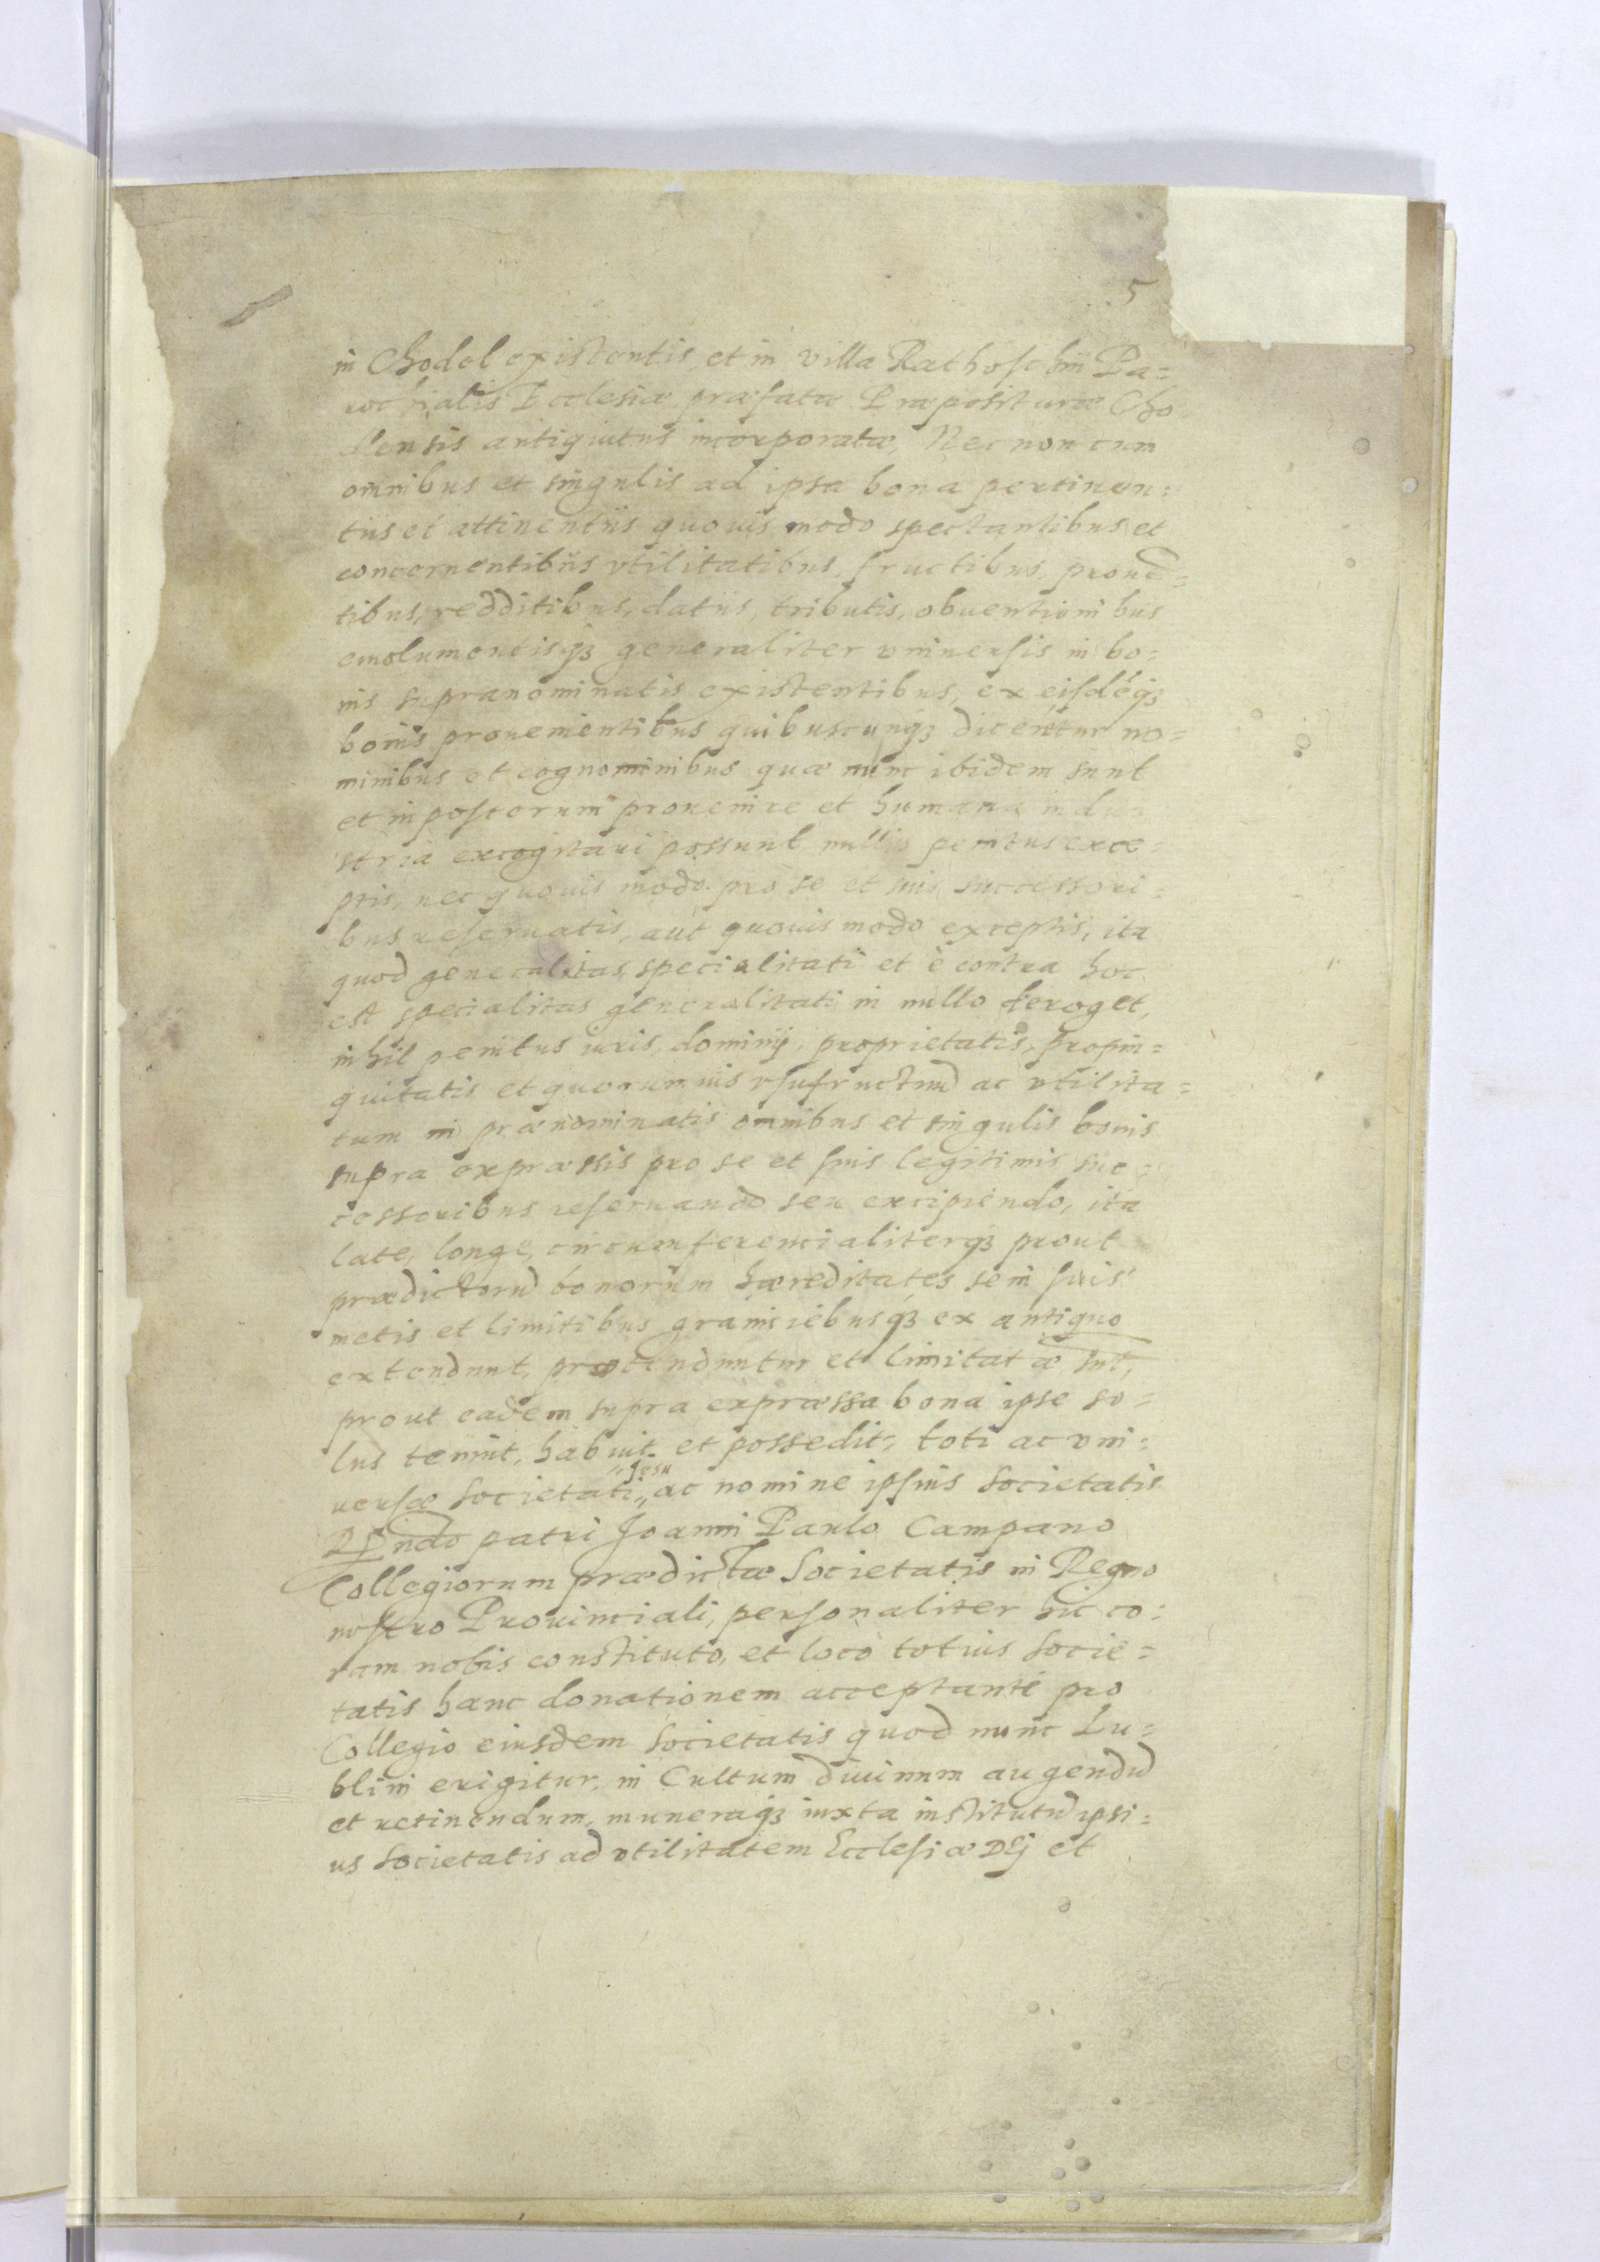 5
in Chodel existentis, et in villa Rathoschin Pa=
rochialis Ecclesiæ præfatæ Præpositurę Cho
lensis antiquitus incorporatæ, Nec non cum
omnibus et singulis ad ipsa bona pertinen=
tiis et attinentiis quouis modo spectantibus et
concernentibus vtilitatibus, fructibus, prouē=
tibus, redditibus, datiis, tributis, obuentionibus
emolumentisqȝ generaliter vniuersis in bo=
nis supranominatis existentibus, ex eisdēqȝ
bonis prouenientibus quibuscunqȝ dicerētur no=
minibus et cognominibus quæ nunc ibidem sunt
et in posterum prouenire et humana indu
stria excogitari possunt nullis penitus exce=
ptis, nec quouis modo pro se et suis successori=
bus reseruatis, aut quouis modo exceptis, ita
quod generalitas specialitati et è contra hoc
est specialitas generalitati in nullo deroget,
nihil penitus iuris, dominij, proprietatis, propin=
quitatis et quorumuis vsufructuū ac vtilita=
tum in prænominatis omnibus et singulis bonis
supra expræssis pro se et suis legitimis suc=
cessoribus reseruando seu excipiendo, ita
late, longe, circumferencialiterqȝ prout
prædictorū bonorum hæreditates sem suis
metis et limitibus graniciebusqȝ ex antiquo
extendunt, prætenduntur et limitatæ sūt,
prout eadem supra expræssa bona ipse so=
lus tenuit, habuit et possedit, toti ac vni=
"Jesu
uersæ Societati,, ac nomine ipsius Societatis
Rndo patri Joanni Paulo Campano
Collegiorum prædictæ Societatis in Regno
nostro Prouinciali, personaliter hic co=
ram nobis constituto, et loco totius Socie=
tatis hanc donationem acceptante pro
Collegio eiusdem Societatis quod nunc Lu=
blini erigitur, in Cultum diuinum augendū
et retinendum, muneraqȝ iuxta institutū ipsi=
us Societatis ad vtilitatem Ecclesiæ DEj et